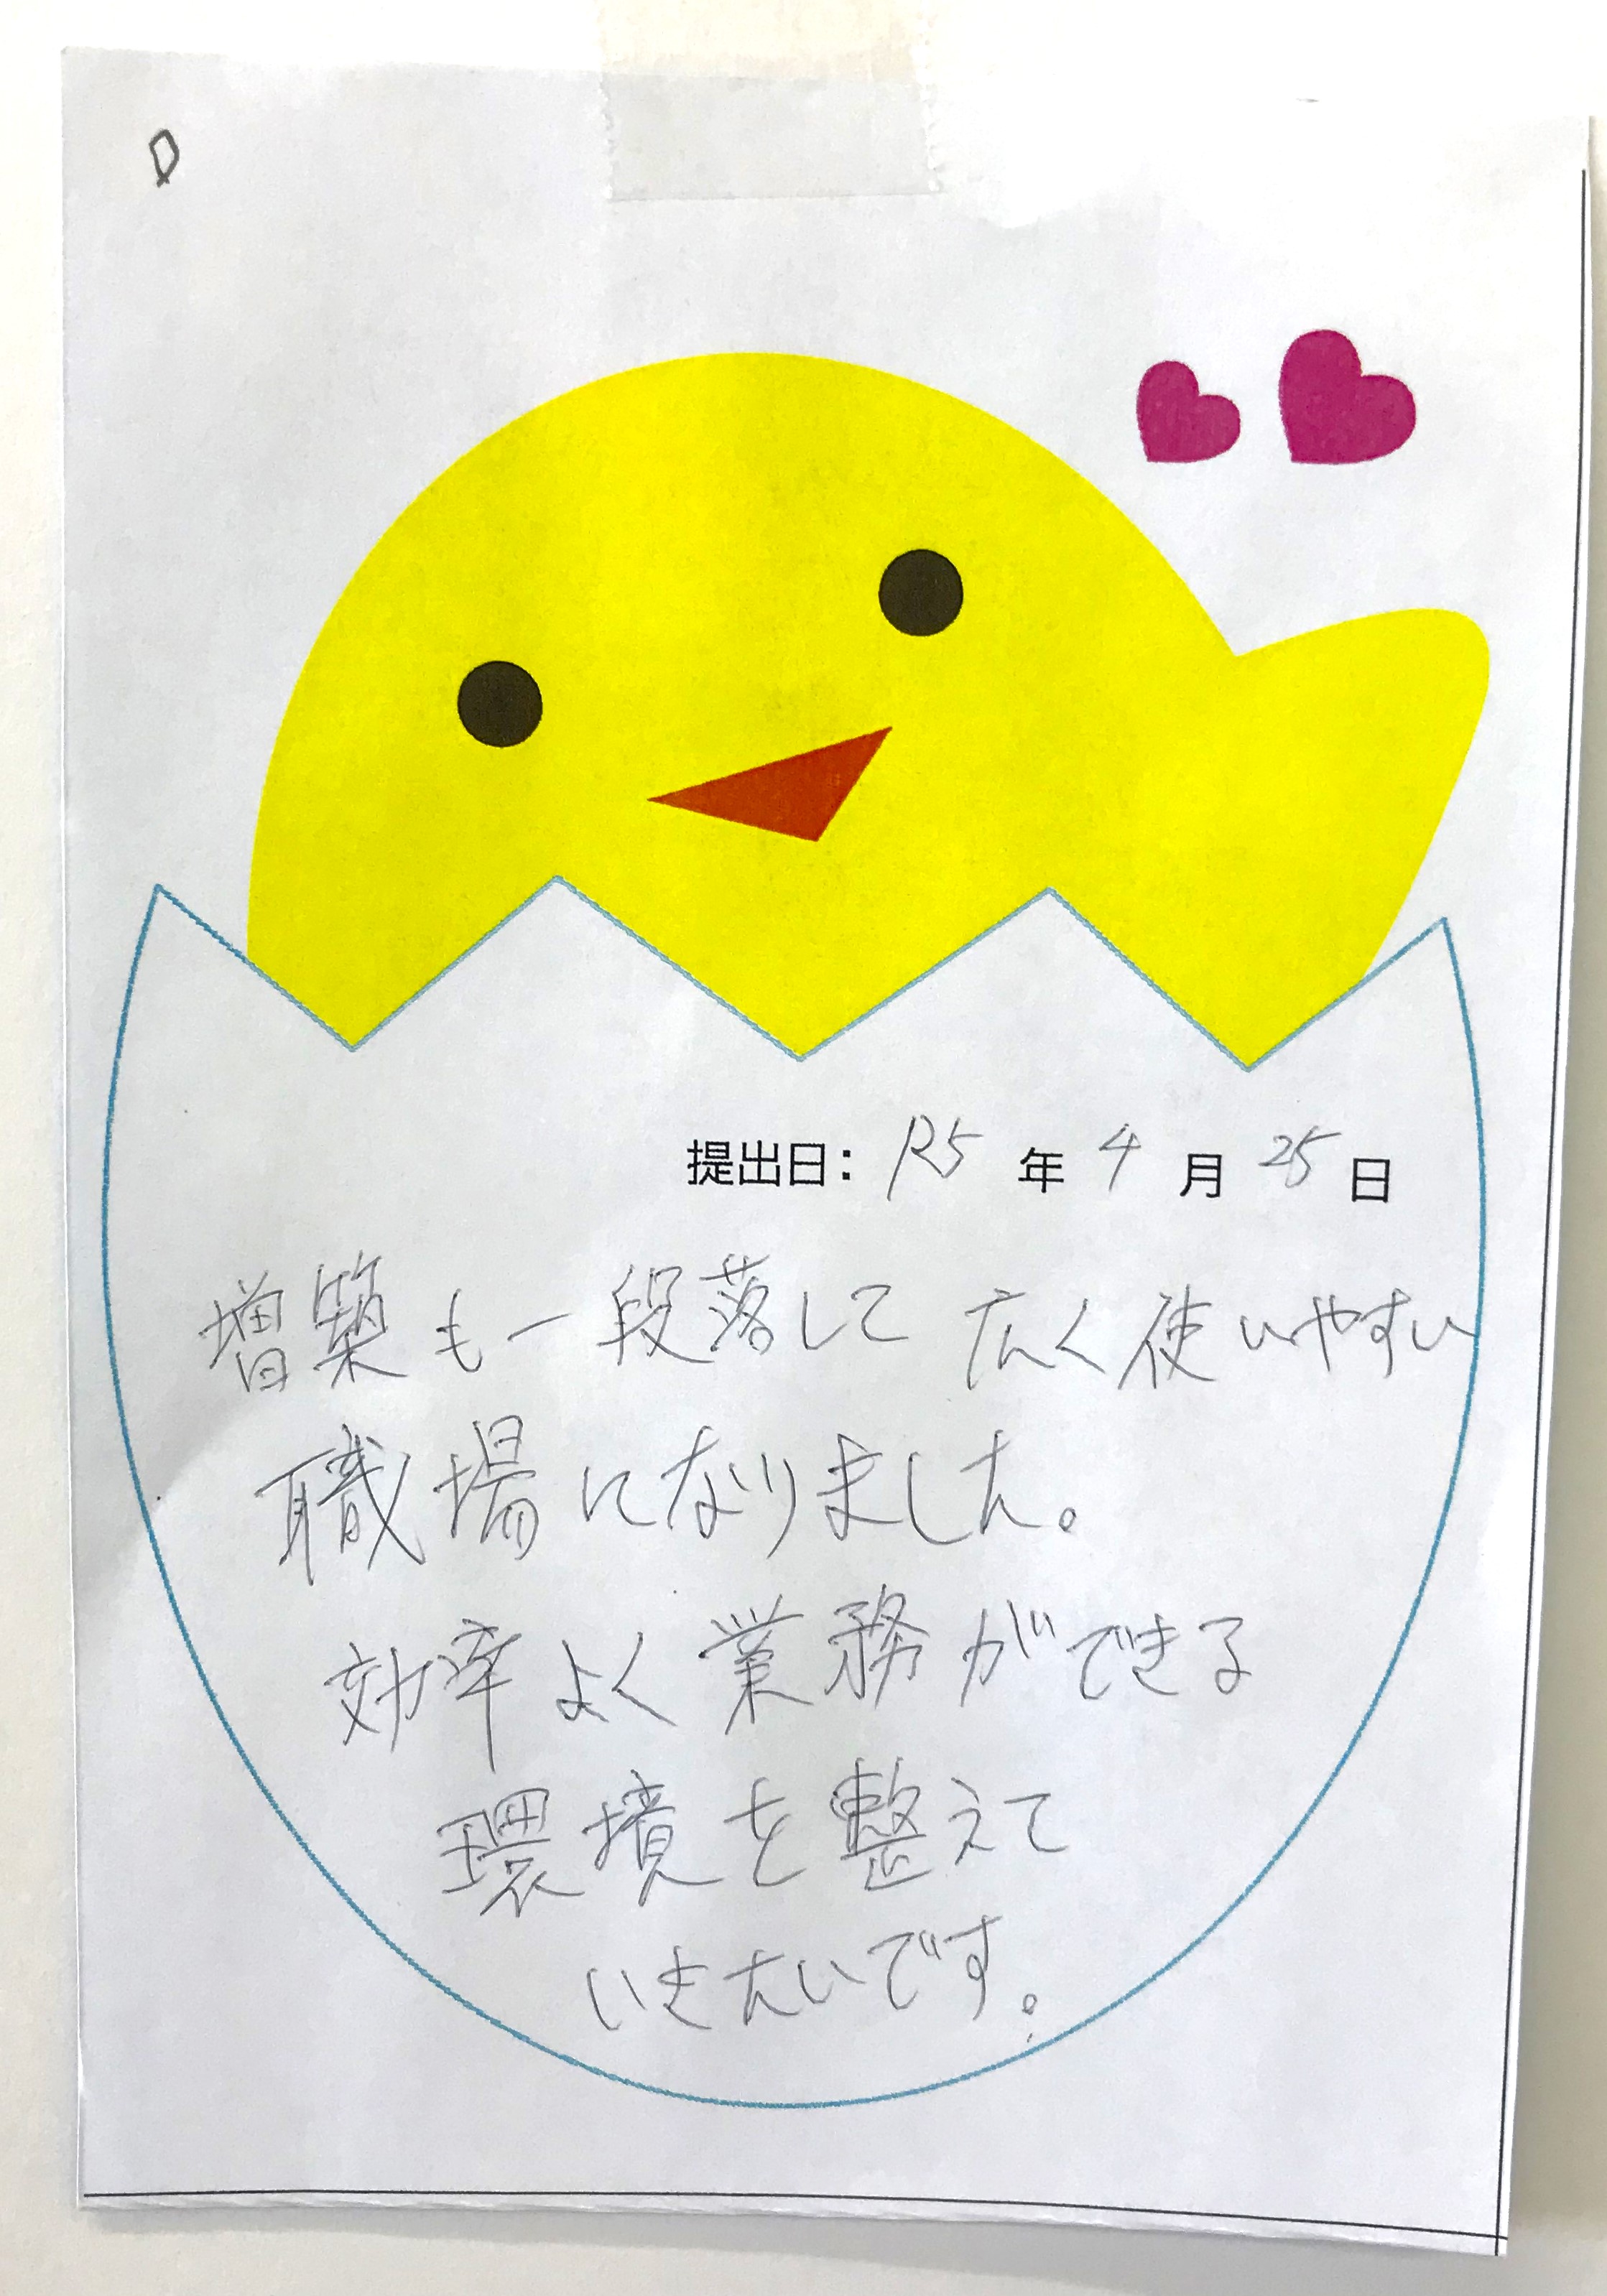 提出日: R5 年 4 月 25 日
増築も一段落して 広く使いやすい
職場になりました。
効率よく業務ができる
環境を整えて
いきたいです。